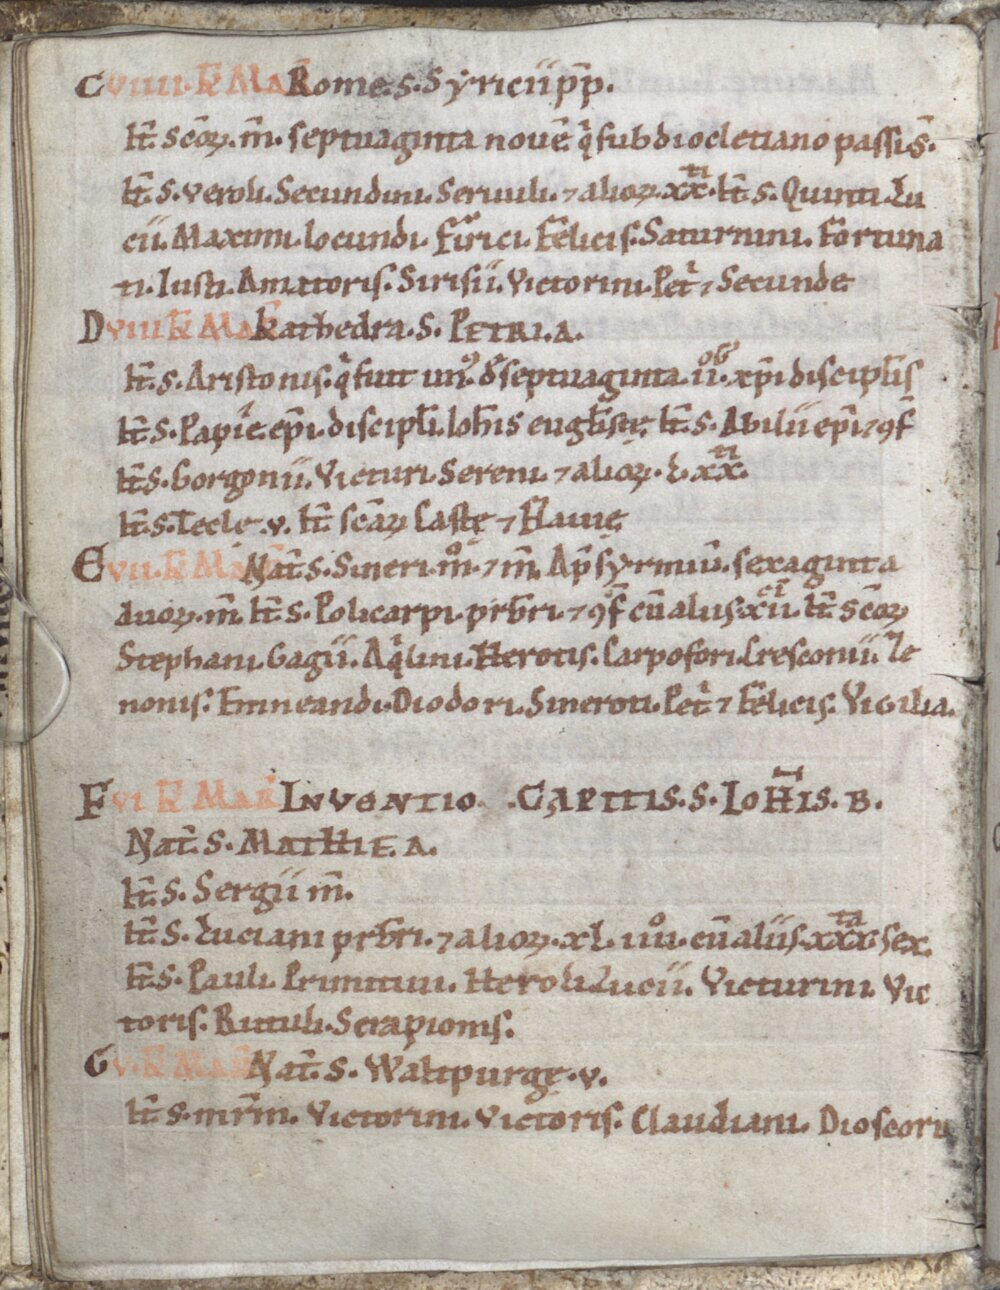 C VIIII. K̄ MAR̄ Rome. S. Syricii pp̄.
It̄. S. scōꝝ. m̄. septuaginta novē qͥ sub diocletiano passi s̄.
It̄. S. Veroli. Secundini. Serviili. ⁊ alioꝝ. xx.ti It̄. S. Quinti. Lu
cii. Maximi. Iocundi. Fir̄ici. Felicis. Saturnini. Fortuna
ti. Iusti. Amatoris. Sirisii. Victorini. Pet̄ ⁊ Secunde
D VIII K̄ MAR̄ Kathedra. S. PETRI. A.
It̄. S. Aristonis. qͥ fuit un᷒. de septuaginta. ii.ob᷒ xp̄i discipulis
It̄. S. Papie. ep̄i. discipli. Ioh̄is eugl̄istę. It̄. S. Abilii ep̄i ⁊ ꝯf̄
It̄. S. Gorgonii. Victuri. Sereni. ⁊ alioꝝ. L. xx.ti
It̄. S. Tecle. v. It̄ scāꝝ Castę ⁊ Flavię
E VII. K̄ MAR̄ Nat̄. S. Sineri. mo. ⁊ m̄. Ap̄ syrmiū. sexaginta
duoꝝ. m̄. It̄. S. Policarpi. prb̄ri. ⁊ ꝯf̄ cū aliis. xii.ci It̄. scōꝝ
Stephani. Gagii. Aqͥlini. Herotis. Carpofori. Cresconii. Ze
nonis. Emneandi. Diodori. Sineroti. Pet̄ ⁊ Felicis. Vigilia.
F VI K̄ MAR̄ INVENTIO. CAPITIS. S. IOH̄IS. B.
Nat̄. S. MATHIE. A.
It̄. S. Sergii m̄.
It̄. S. Luciani prb̄ri. ⁊ alioꝝ. xL. iiii.o cū aliis. xxx.ta sex.
It̄. S. Pauli. Primitivi. Heroli. Lucii. Victurini. Vic
toris. Rutuli. Serapionis.
G V. K̄ MAR̄ Nat̄. S. Waltpurgę. v.
It̄. S. mr̄m. Victorini. Victoris. Claudiani. Dioscori